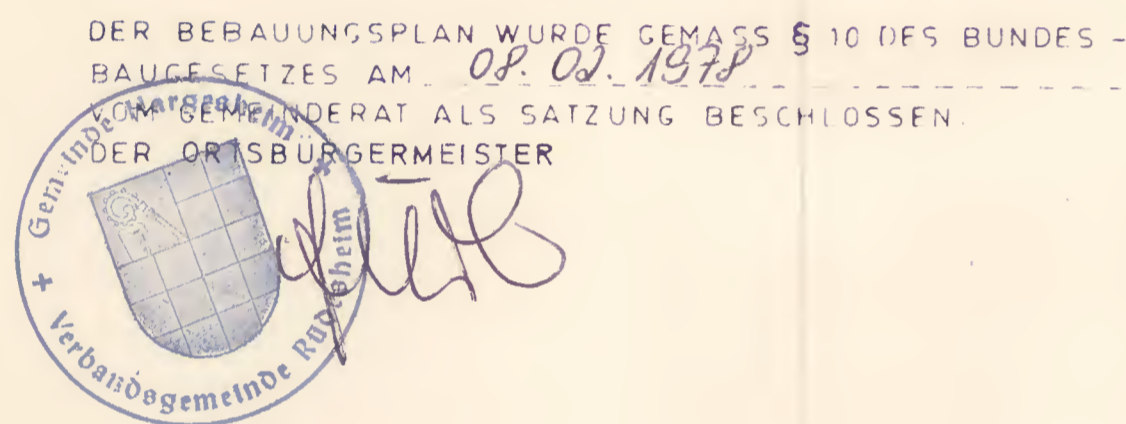 DER BEBAUUNGSPLAN WURDE GEMASS § 10 DES BUNDES -
BAUGESETZES AM 08. 02. 1978
VOM GEMEINDERAT ALS SATZUNG BESCHLOSSEN.
DER ORTSBÜRGERMEISTER
Gemeinde Hargesheim
+ Verbandsgemeinde Rüdesheim +